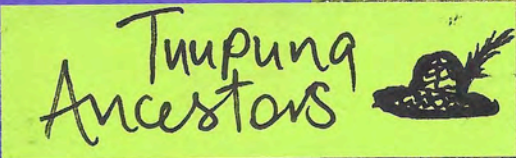 Tuupuna
Ancestors